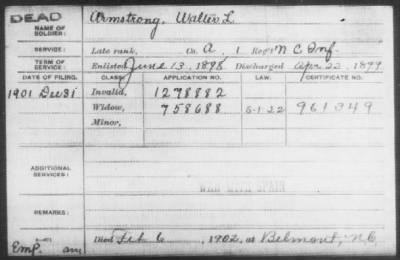 DEAD
NAME OF SOLDIER: Armstrong, Walter L.
SERVICE: Late rank, Co. A, 1 Reg't N C Inf.
TERM OF SERVICE: Enlisted June 13, 1898 Discharged Apr. 22, 1899
DATE OF FILING. CLASS. APPLICATION NO. LAW. CERTIFICATE NO.
1901 Dec 31 Invalid, 1278882
Widow, 758688 5-1-22 961349
Minor,
ADDITIONAL SERVICES:
WAR WITH SPAIN
REMARKS:
Died Feb 6, 1902, at Belmont, N.C.